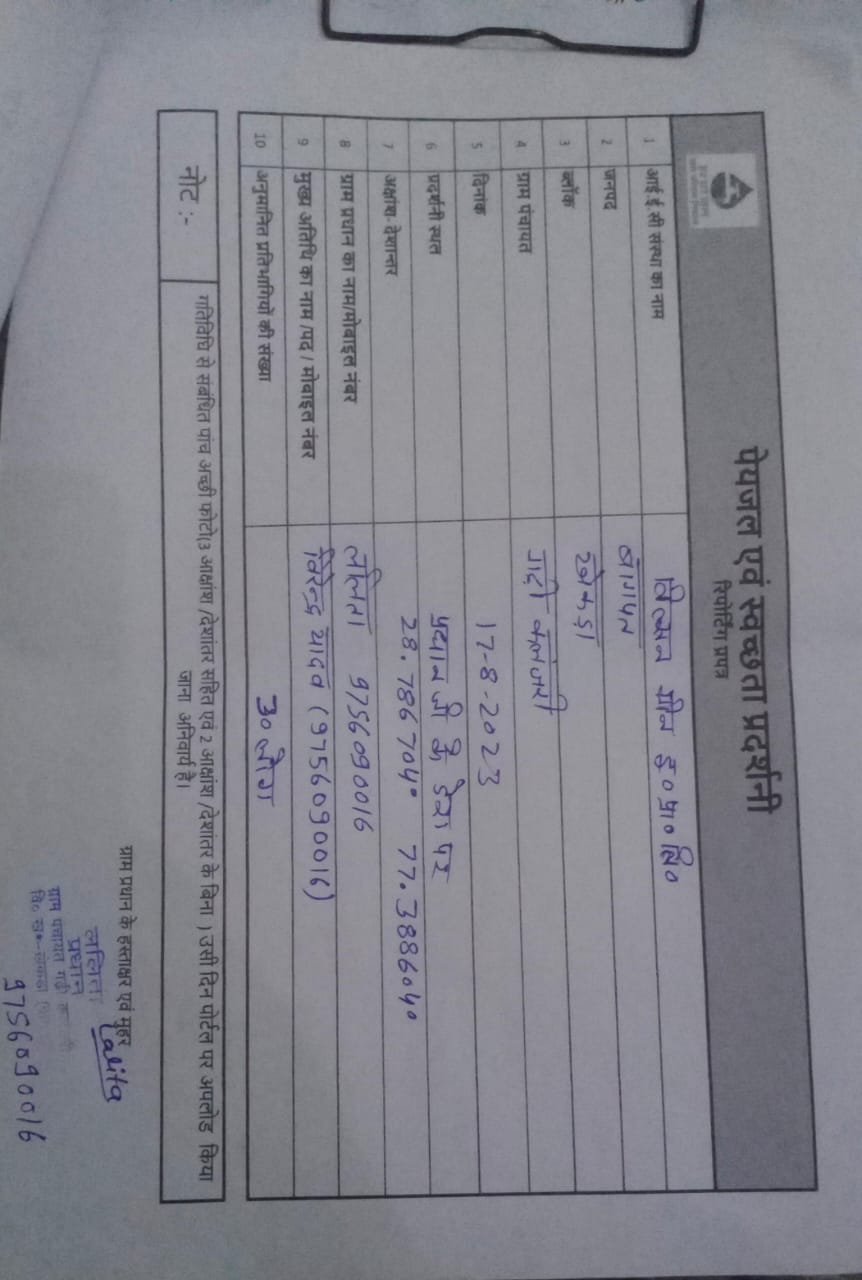 पेयजल एवं स्वच्छता प्रदर्शनी
रिपोर्टिंग प्रपत्र
1 आई ई सी संस्था का नाम विल्मान ग्रीन इ०प्रा०लि०
2 जनपद बागपत
3 ब्लॉक खेकड़ा
4 ग्राम पंचायत गढ़ी कलंजरी
5 दिनांक 17-8-2023
6 प्रदर्शनी स्थल प्रधान जी के डेरा पर
7 अक्षांश-देशान्तर 28.786704° 77.388604°
8 ग्राम प्रधान का नाम/मोबाइल नंबर ललिता 9756090016
9 मुख्य अतिथि का नाम /पद / मोबाइल नंबर विरेन्द्र यादव (9756090016)
10 अनुमानित प्रतिभागियों की संख्या 30 लोग
नोट :- गतिविधि से संबंधित पांच अच्छी फोटो(3 आक्षांश /देशांतर सहित एवं 2 आक्षांश /देशांतर के बिना ) उसी दिन पोर्टल पर अपलोड किया
जाना अनिवार्य है।
ग्राम प्रधान के हस्ताक्षर एवं मुहर
ललिता Lalita
प्रधान
ग्राम पंचायत गढ़ी
वि० ख०-
9756090016